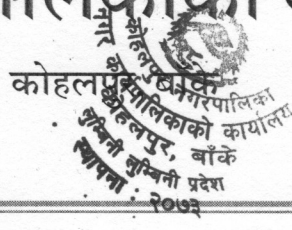 कोहलपुर बाँके
कोहलपुर नगरपालिका
नगर कार्यपालिकाको कार्यालय
कोहलपुर, बाँके
लुम्बिनी प्रदेश
स्थापना २०७३